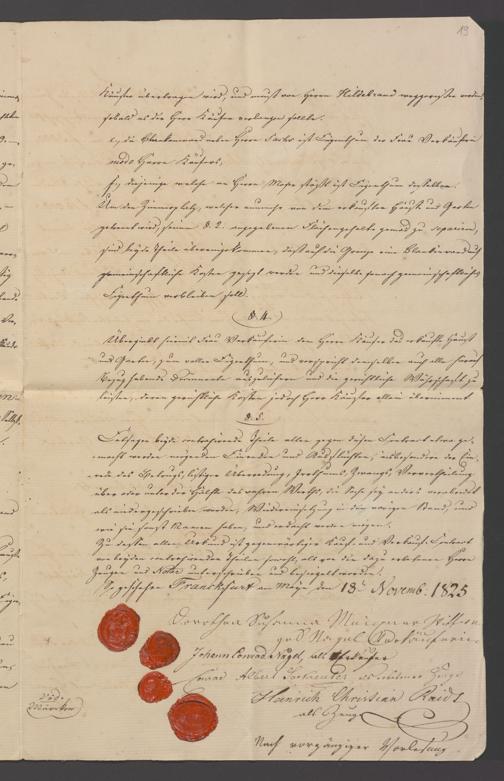 19
Käufer übertragen wird, und muß von Herrn Hildebrand weggerissen werden,
sobald es der Herr Käufer verlangen sollte.
e, die Blankenwand neben Herrn ist Eigenthum der Frau Verkäuferin
modo Herrn Käufers,
f, diejenige welche an Herrn stößt ist Eigenthum desselben.
Um den Zimmerplatz, welcher nunmehr von dem verkauften Hauß und Garten
getrennt wird, seinem §. 2. angegebenen Flächengehalte gemäß zu separiren,
sind beyde Theile übereingekommen, daß auf die Grenze eine Blankenwand auf
gemeinschaftliche Kosten gesetzt werden und dieselbe sonach gemeinschaftliches
Eigenthum verbleiben soll.
§. 4.
Übergiebt hiermit Frau Verkäuferin dem Herrn Käufer das verkaufte Hauß
und Garten, zum vollen Eigenthum, und verspricht demselben auch alle hierauf
Bezug habende Documente auszuliefern und die gerichtliche Währschaft zu
leisten, deren gerichtliche Kosten jedoch Herr Käufer allein übernimmt
§. 5.
Entsagen beyde contrahirende Theile allen gegen diesen Contract etwa ge-
macht werden mögenden Einreden und Ausflüchten, insbesondere der Ein-
rede des Betrugs, listiger Überredung, Irrthums, Zwangs, Vervortheilung
über oder unter die Hälfte des wahren Werths, die Sache sey anders verabredet
als niedergeschrieben worden, Wiedereinsetzung in den vorigen Stand, und
wie sie sonst Namen haben, und erdacht werden mögen.
Zu dessen allen Urkund ist gegenwärtiger Kauf und Verkauf-Contract
von beyden contrahirenden Theilen sowohl, als von den dazu erbetenen Herrn
Zeugen und unterschrieben und besiegelt worden.
So geschehen Franckfurt am Mayn den 18. Novemb. 1825
Dorothea Susanna Wittwe
geb Nagel Verkäuferin
Johann Conrad Nagel, als Verkäufer
Conrad Albert als erbetener Zeuge
Heinrich Christian
als Zeuge
Nach vorgängiger Vorlesung